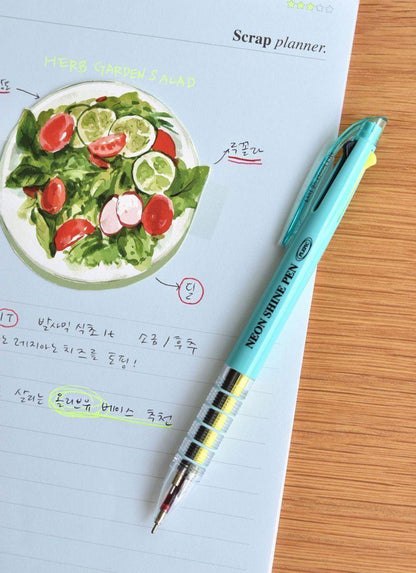 Scrap planner.
HERB GARDEN SALAD
루꼴라
딜
발사믹 식초 1t 소금/후추
레지아노 치즈로 토핑!
살리는 올리브유 베이스 추천
NEON SHINE PEN